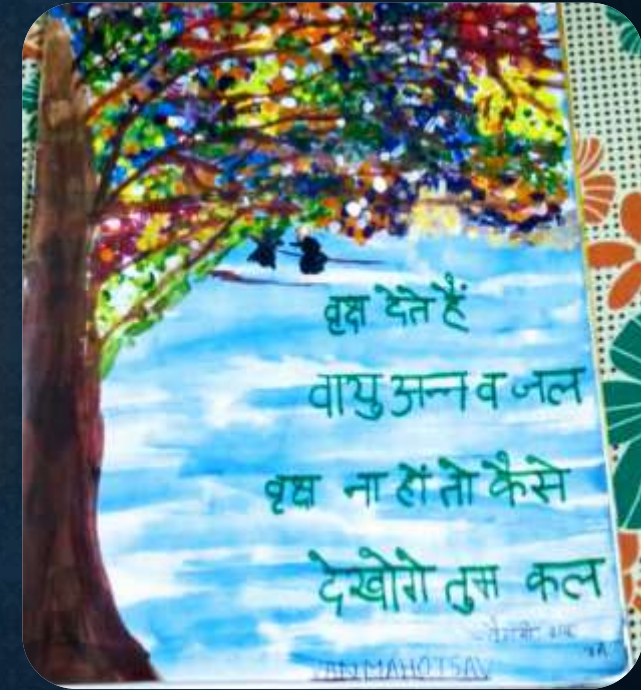 वृक्ष देते हैं
वायु अन्न व जल
वृक्ष ना हों तो कैसे
देखोगे तुम कल
VAN MAHOTSAV